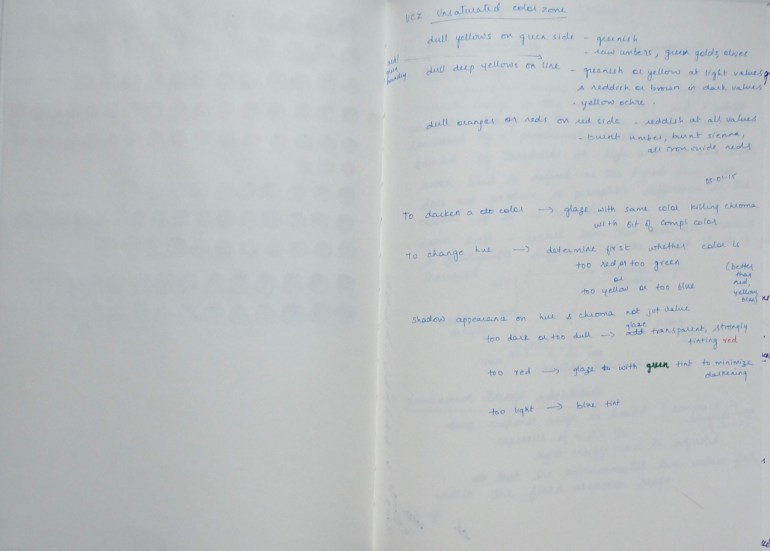 UCZ Unsaturated color zone
dull yellows on green side - greenish
- raw umbers, green golds olives
red/
green
boundary
dull deep yellows on line - greenish or yellow at light values
& reddish or brown in dark values
- yellow ochre.
dull oranges or reds on red side - reddish at all values
- burnt umber, burnt sienna,
all iron oxide reds
To darken a color → glaze with same color killing chroma
with bit of compl color
To change hue → determine first whether color is
too red or too green
or
too yellow or too blue
(better
than
red,
yellow,
blue)
Shadow appearance on hue & chroma not jut value
too dark or too dull → glaze transparent, strongly
tinting red
too red → glaze with green tint to minimize
darkening
too light → blue tint